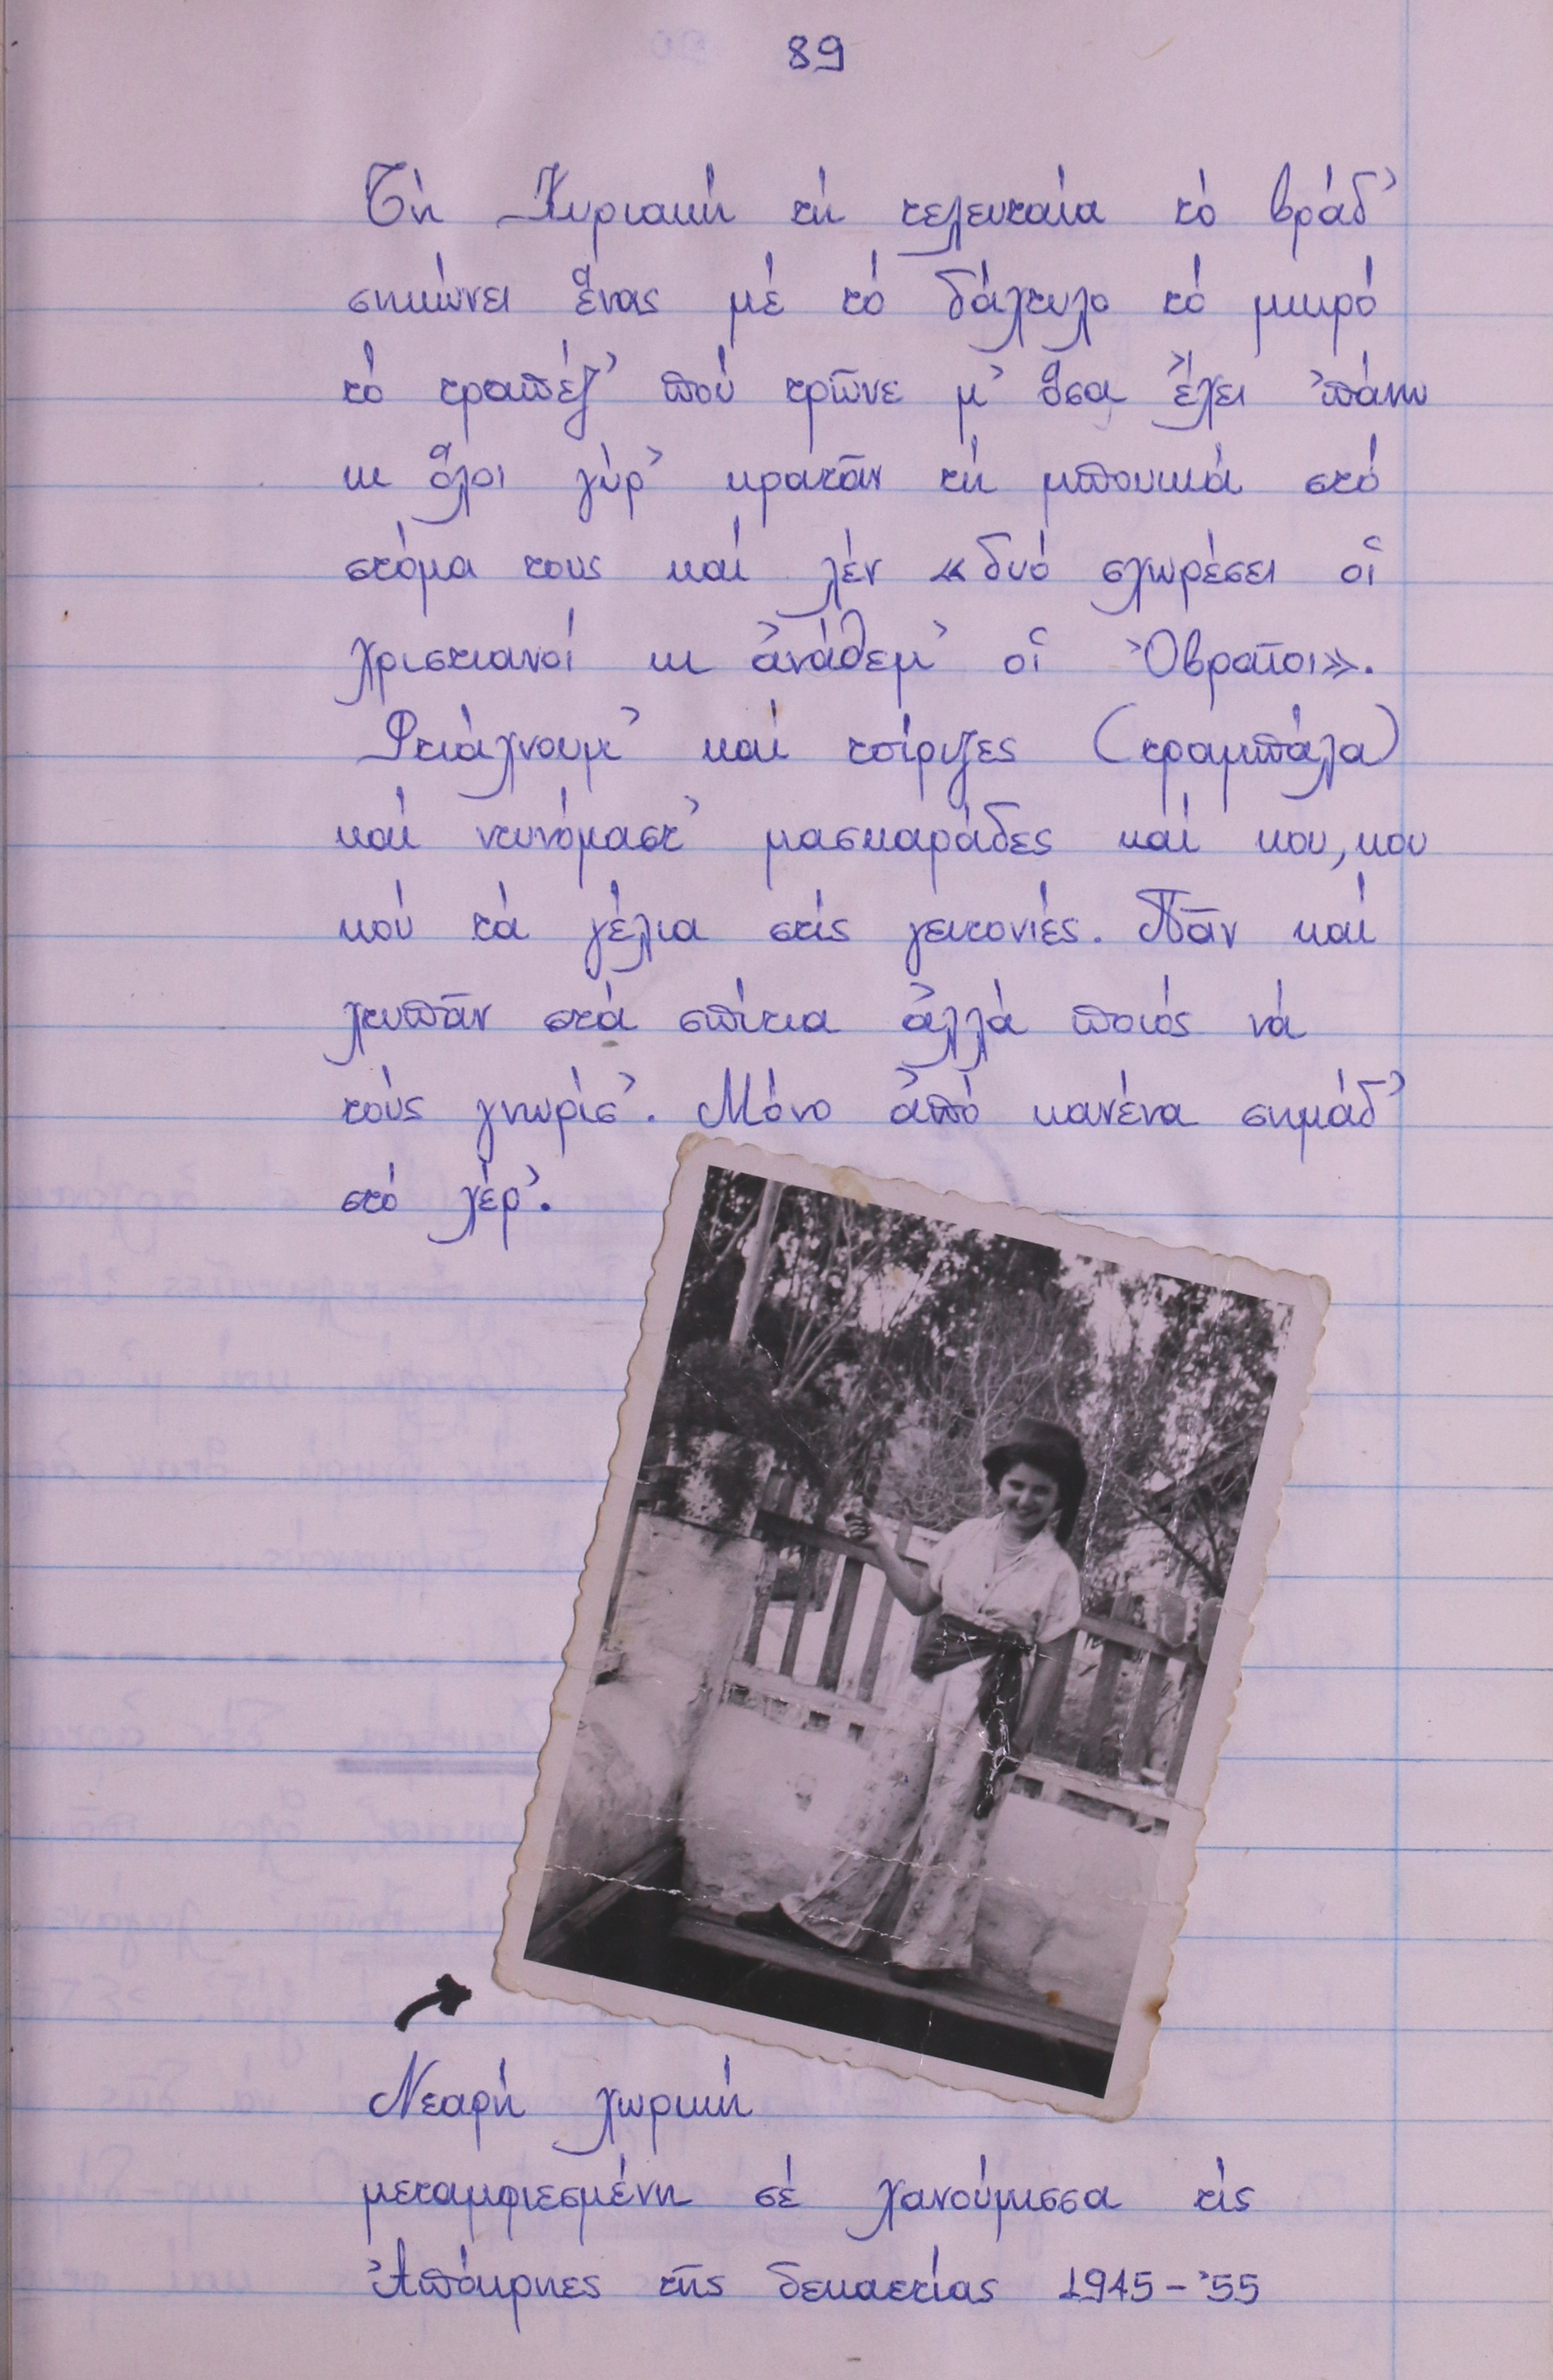 89
Τή Κυριακή τή τελευταία τό βράδ'
σηκώνει ἕνας μέ τό δάχτυλο τό μικρό
τό τραπέζ' πού τρῶνε μ' ὅσα ἔχει 'πάνω
κι ὅλοι γύρ' κρατᾶν τή μπουκιά στό
στόμα τους καί λέν «δυό σχωρέσει οἱ
χριστιανοί κι ἀνάθεμ' οἱ Ὀβραῖοι».
Φτιάχνουμ' καί τσίριζες (τραμπάλα)
καί ντυνόμαστ' μασκαράδες καί κου, κου
κού τά γέλια στίς γειτονιές. Πᾶν καί
χτυπᾶν στά σπίτια ἀλλά ποιός νά
τούς γνωρίσ'. Μόνο ἀπό κανένα σημάδ'
στό χέρ'.
Νεαρή χωρική
μεταμφιεσμένη σέ χανούμισσα τίς
Ἀπόκρηες τῆς δεκαετίας 1945-'55